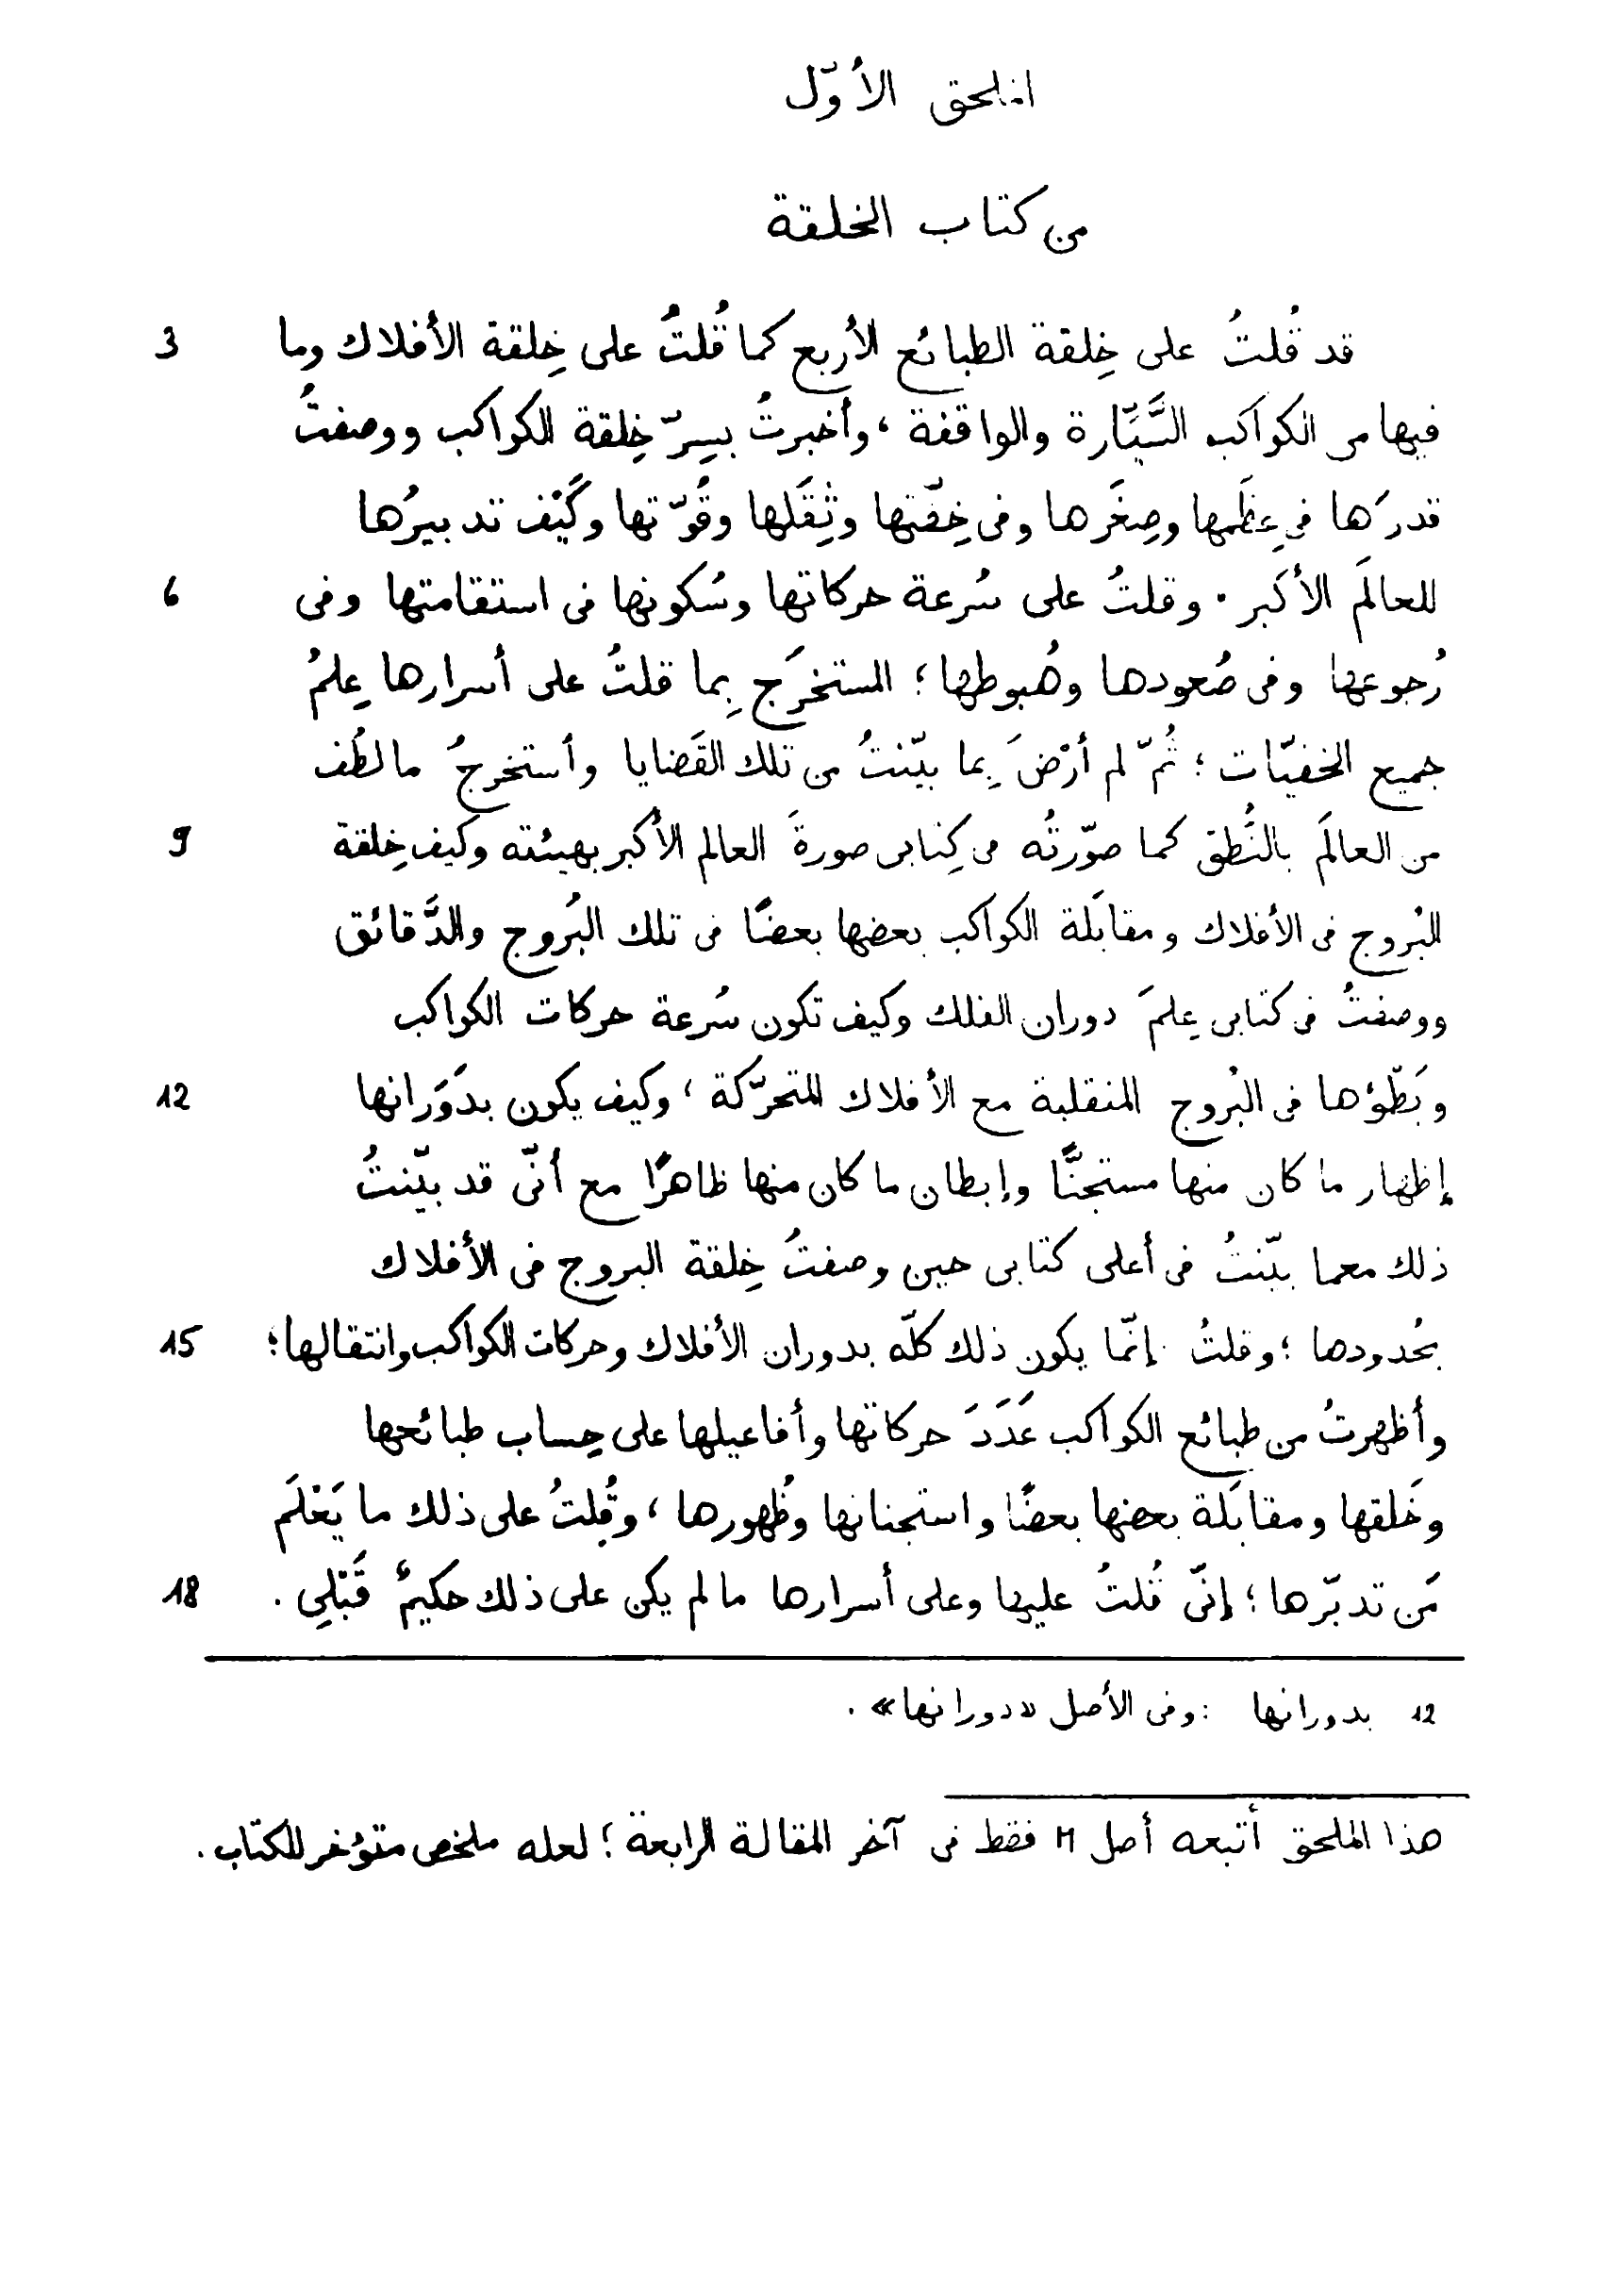 الملحق الأوّل
من كتاب الخلقة
قد قُلتُ على خِلقة الطبائع الأربع كما قُلتُ على خِلقة الأفلاك وما 3
فيها من الكواكب السَّيّارة والواقفة ، وأخبرتُ بسِرّ خِلقة الكواكب ووصفتُ
قدرَها فى عِظَمها وصِغَرها وفى خِفّتها وثِقَلها وقُوّتها وكَيْف تدبيرُها
للعالَم الأكبر . وقلتُ على سُرعة حركاتها وسُكونها فى استقامتها وفى 6
رُجوعها وفى صُعودها وهُبوطها ؛ المستخرَج بِما قلتُ على أسرارها عِلمُ
جميع الخفيّات ؛ ثُمّ لم أرْضَ بِما بيّنتُ من تلك القَضايا وأستخرجُ ما لطُف
من العالَم بالنُّطق كما صوّرتُه فى كِتابى صورةَ العالم الأكبر بهيئته وكيف خِلقة 9
البُروج فى الأفلاك ومقابَلة الكواكب بعضها بعضًا فى تلك البُروج والدَّقائق
ووصفتُ فى كتابى عِلمَ دوران الفلك وكيف تكون سُرعة حركات الكواكب
وبَطّؤها فى البُروج المنقلبة مع الأفلاك المتحرّكة ، وكيف يكون بدَوَرانها 12
إظهار ما كان منها مستجنًّا وإبطان ما كان منها ظاهرًا مع أنّى قد بيّنتُ
ذلك معما بيّنتُ فى أعلى كتابى حين وصفتُ خِلقة البروج فى الأفلاك
بحُدودها ؛ وقلتُ إنّما يكون ذلك كلّه بدوران الأفلاك وحركات الكواكب وانتقالها ؛ 15
وأظهرتُ من طبائع الكواكب عَدَدَ حركاتها وأفاعيلها على حِساب طبائعها
وخَلقها ومقابَلة بعضها بعضًا واستجنانها وظُهورها ، وقُلتُ على ذلك ما يَعْلَم
مَن تدبّرها ؛ إنّى قُلتُ عليها وعلى أسرارها ما لم يكن على ذلك حكيمٌ قَبْلِى . 18
12 بدورانها : وفى الأصل «دورانها» .
هذا الملحق أتبعه أصل M فقط فى آخر المقالة الرابعة ؛ لعله ملخص متؤخر للكتاب .